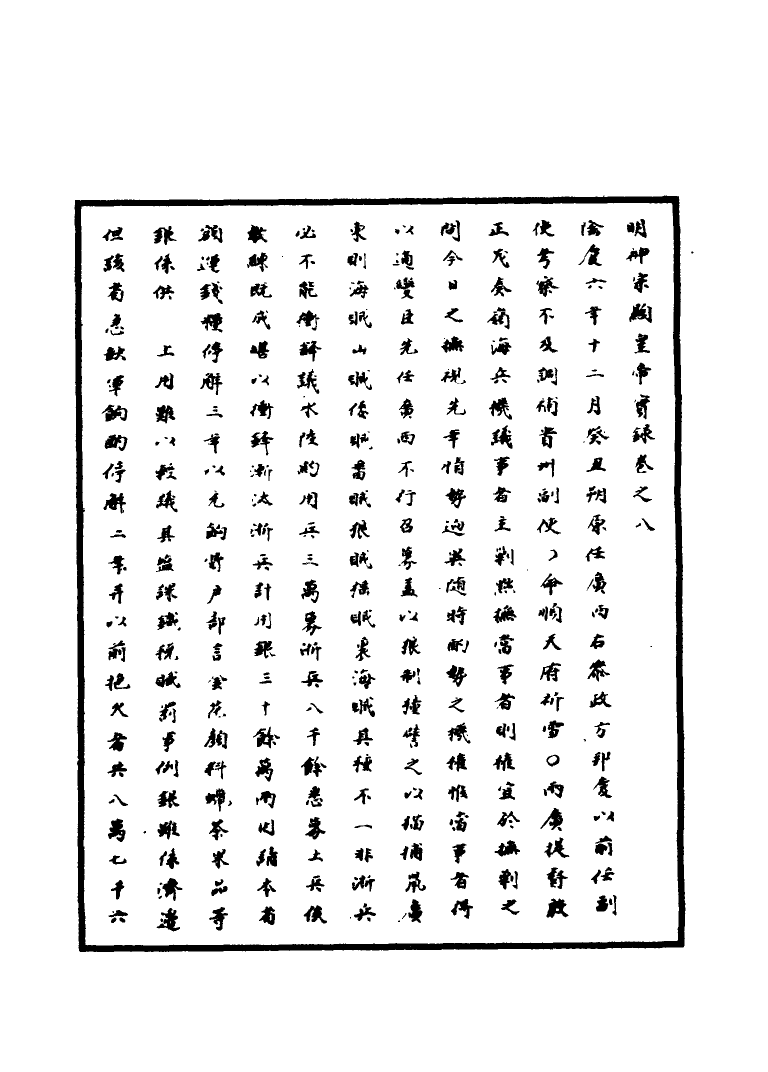 明神宗顯皇帝實錄卷之八
隆慶六年十二月癸丑朔原任廣西右參政方邦慶以前任副
使考察不及調補貴州副使○命順天府祈雪○兩廣提督殷
正茂奏嶺海兵機議事者主剿照撫當事者則權宜於撫剿之
間今日之撫視先年怕勢迫異隨時酌勢之機權惟當事者得
以通變臣先任廣西不行召募蓋以狼制獞譬之以猫捕鼠廣
東則海賊山賊倭賊畨賊狼賊猺賊裏海賊其種不一非浙兵
必不能衝鋒議水陸酌用兵三萬募浙兵八千餘悉募土兵俟
教練旣成堪以衝鋒漸汰浙兵計用銀三十餘萬兩因請本省
額運錢糧停解三年以充餉膏戶部言金花顏料蠟茶果品等
銀係供　上用難以輕議其鹽課鐵稅贓罰事例銀雖係濟邊
但該省急缺軍餉酌停解二年并以前拖欠者共八萬七千六